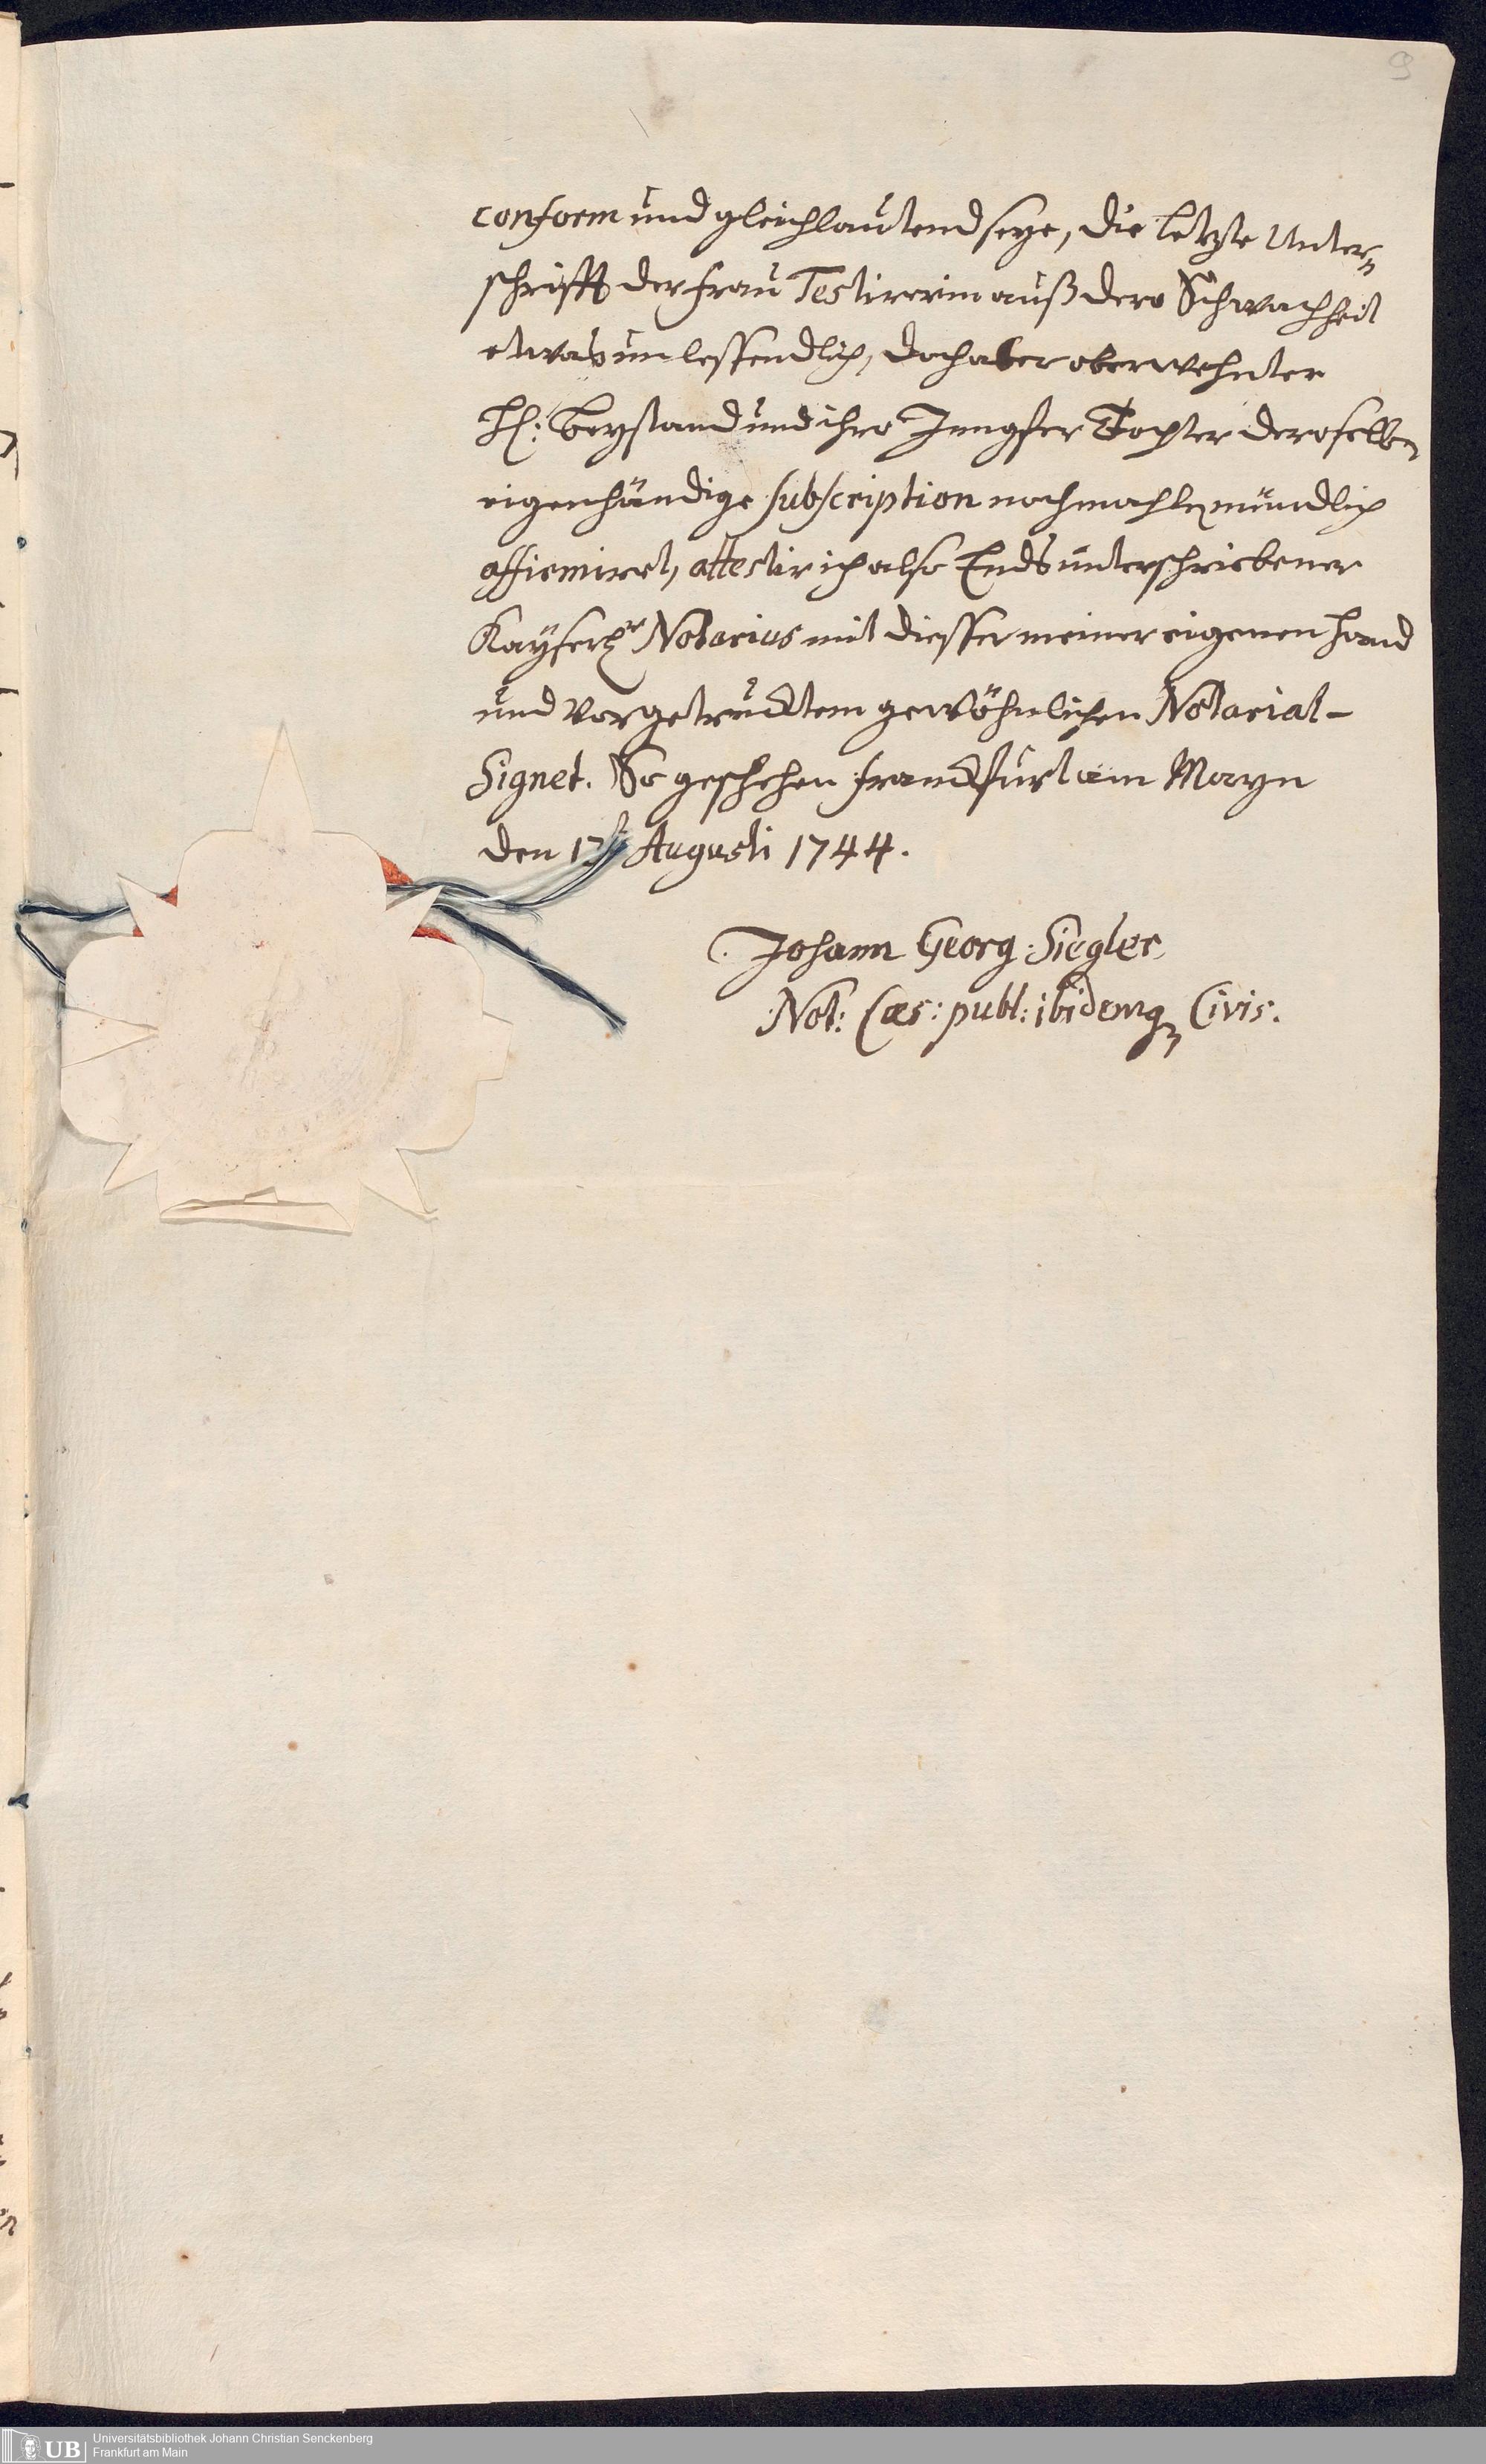 9
conform und gleichlautend seye, die letzte Unter=
schrifft der Frau Testirerin auß dero Schwachheit
etwas unlessendlich, doch aber oberwehnter
H: Beystand und ihro Jungfer Tochter deroselben
eigenhändige subscription nochmahls mündlich
affirmiret, attestir ich also Ends unterschriebener
Kayserl.r Notarius mit diesser meiner eigenen Hand
und vorgetrucktem gewöhnlichen Notarial-
Signet. So geschehen Franckfurt am Mayn
den Augusti 1744.
Johann Georg Siegler
Not: Cæs: publ: ibidemq Civis.
UB
Universitätsbibliothek Johann Christian Senckenberg
Frankfurt am Main